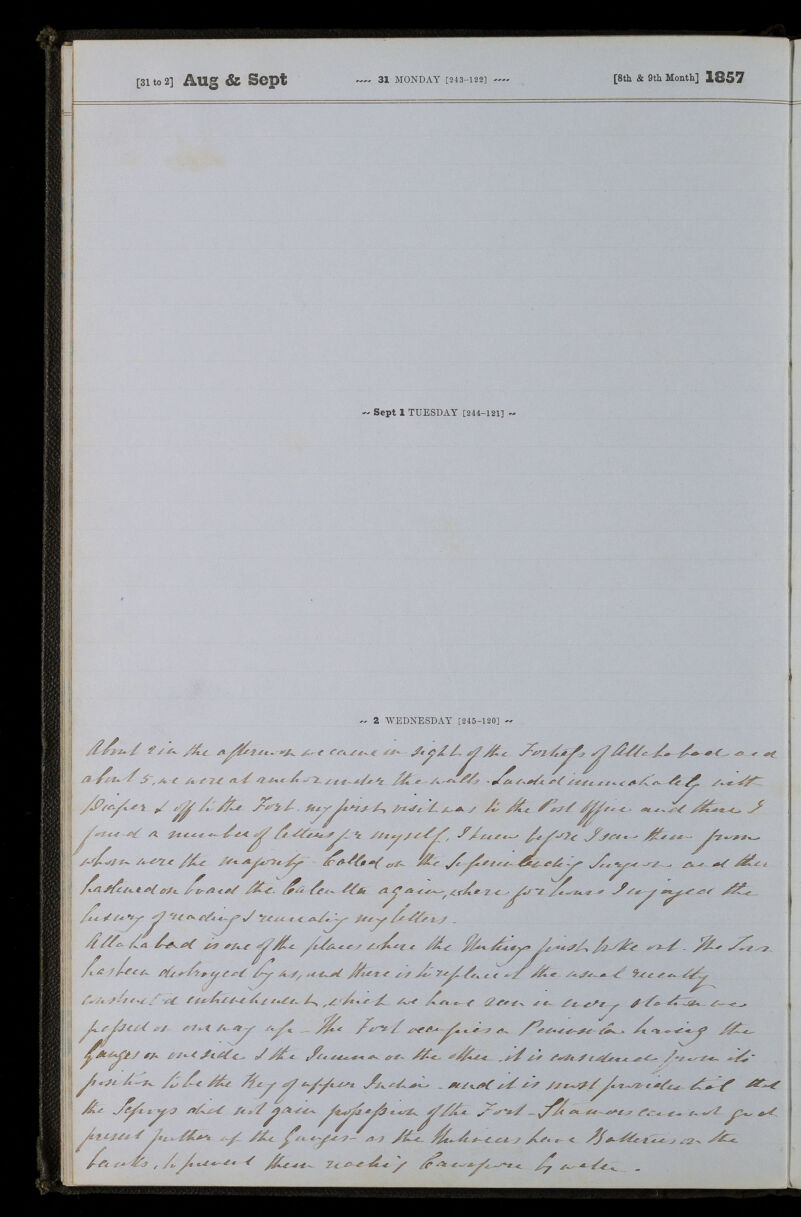 [31 to 2] Aug & Sept ---- 31 MONDAY [243-122] ---- [8th & 9th Month] 1857
-- Sept 1 TUESDAY [244-121] --
-- 2 WEDNESDAY [245-120] --
About 2 in the afternoon we came in sight of the Fortress of Allahabad and
about 5, we were at anchor under the walls. Landed immediately with
Diaper & off to the Fort. my first visit was to the Post Office and there I
found a number of letters for myself, I knew before I saw them from
whom were the majority. Called on the Superintending Surgeon and then
hastened on board the Calcutta again, where for hours I enjoyed the
luxury of reading & rereading my letters.
Allahabad is one of the places where the Mutiny first broke out. The Town
has been destroyed by us, and there is to replace it the usual recently
constructed entrenchment, which we have seen in every station we
passed on our way up - The Fort occupies a Peninsula having the
Ganges on one side & the Jumna on the other. it is considered from its
position to be the Key of upper India - and it is most providential that
the Sepoys did not gain possession of the Fort - Steamers cannot go at
present further up the Ganges as the Mutineers have Batteries on the
banks, to prevent them reaching Cawnpore by water.